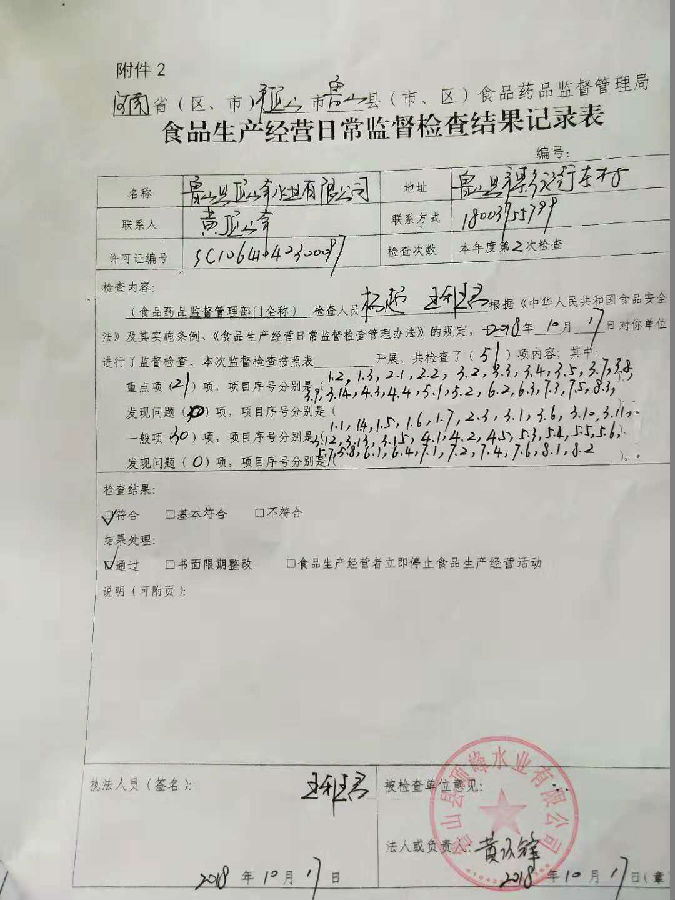 附件2
河南省(区、市)平顶山市鲁山县(市、区)食品药品监督管理局
食品生产经营日常监督检查结果记录表
编号:
名称 鲁山县 水业有限公司 地址 鲁山县
联系人 黄 联系方式
许可证编号 检查次数 本年度第2次检查
检查内容:
(食品药品监督管理部门全称)检查人员 根据《中华人民共和国食品安全
法》及其实施条例、《食品生产经营日常监督检查管理办法》的规定,2018年10月17日对你单位
进行了监督检查。本次监督检查按照表 开展,共检查了(51)项内容;其中:
重点项(21)项,项目序号分别是(1.2,1.3,2.1,2.2,3.2,3.3,3.4,3.5,3.7,3.8,
3.9,3.14,4.3,4.4,5.1,5.2,6.2,6.3,7.3,7.5,8.3)
发现问题(0)项,项目序号分别是(
1.1,1.4,1.5,1.6,1.7,2.3,3.1,3.6,3.10,3.11,
一般项(30)项,项目序号分别是(3.12,3.13,3.15,4.1,4.2,4.5,5.3,5.4,5.5,5.6,
5.7,5.8,6.1,6.4,7.1,7.2,7.4,7.6,8.1,8.2
发现问题(0)项,项目序号分别是( )。
检查结果:
☑符合 □基本符合 □不符合
结果处理:
☑通过 □书面限期整改 □食品生产经营者立即停止食品生产经营活动
说明(可附页):
执法人员(签名): 被检查单位意见:
鲁山县顶峰水业有限公司
法人或负责人: 黄
2018年10月17日 2018年10月17日(章)